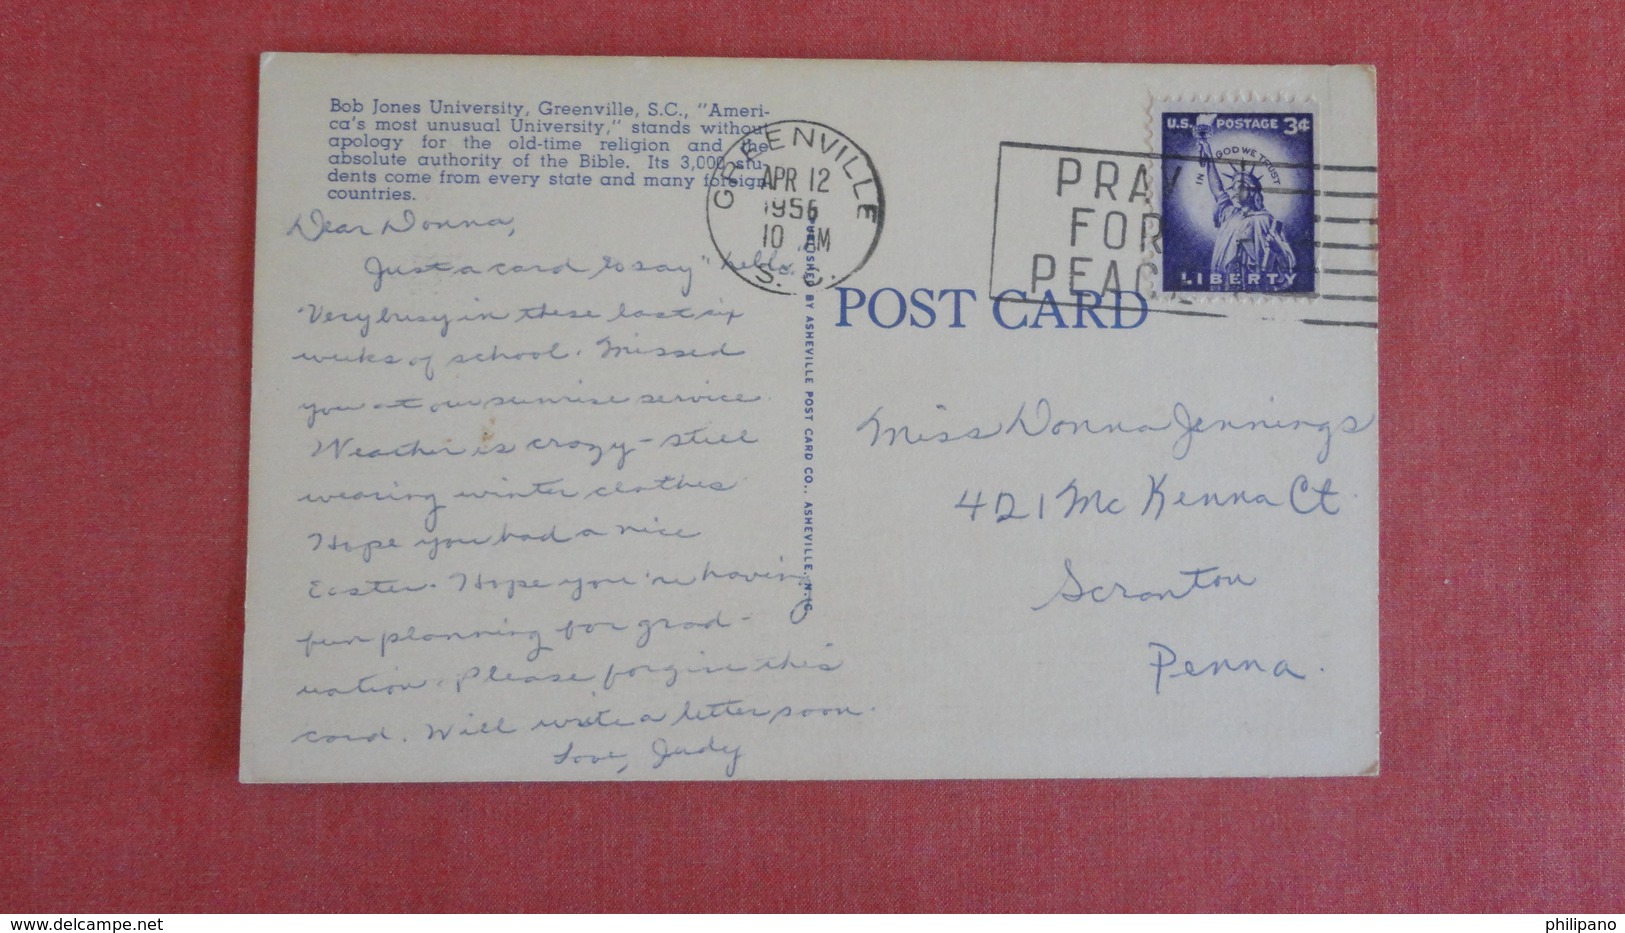 Bob Jones University, Greenville, S.C., "Ameri-
ca's most unusual University," stands without
apology for the old-time religion and the
absolute authority of the Bible. Its 3,000 stu-
dents come from every state and many foreign
countries.
Dear Donna,
Just a card to say "hello."
Very busy in these last six
weeks of school. Missed
you at our sunrise service.
Weather is crazy - still
wearing winter clothes.
Hope you had a nice
Easter. Hope you're having
fun planning for grad-
uation. Please forgive this
card. Will write a letter soon.
Love, Judy
GREENVILLE
APR 12
1956
10 AM
S. C.
PUBLISHED BY ASHEVILLE POST CARD CO., ASHEVILLE, N. C.
POST CARD
PRAY
FOR
PEACE
U.S. POSTAGE 3¢
IN GOD WE TRUST
LIBERTY
Miss Donna Jennings
421 McKenna Ct.
Scranton
Penna.
delcampe.net
philipano